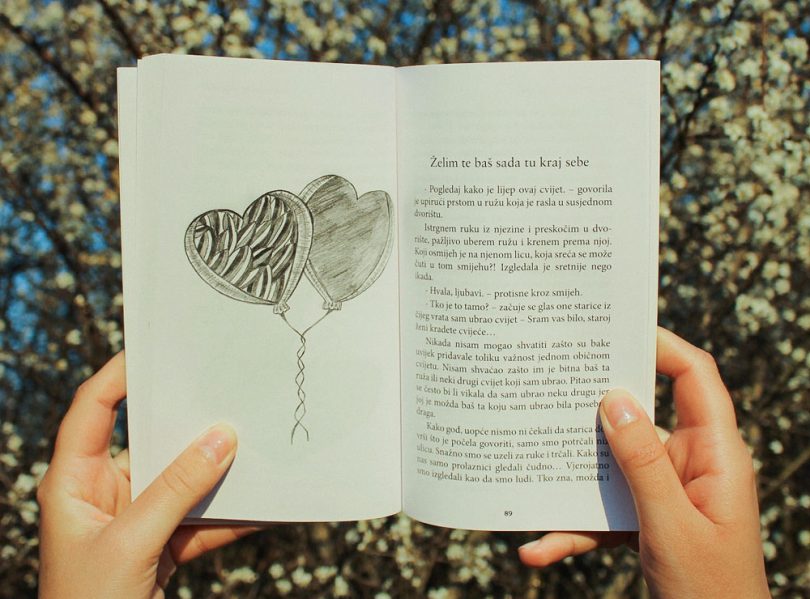 Želim te baš sada tu kraj sebe
- Pogledaj kako je lijep ovaj cvijet. – govorila
je upirući prstom u ružu koja je rasla u susjednom
dvorištu.
Istrgnem ruku iz njezine i preskočim u dvo-
rište, pažljivo uberem ružu i krenem prema njoj.
Koji osmijeh je na njenom licu, koja sreća se može
čuti u tom smijehu?! Izgledala je sretnije nego
ikada.
- Hvala, ljubavi. – protisne kroz smijeh.
- Tko je to tamo? – začuje se glas one starice iz
čijeg vrata sam ubrao cvijet – Sram vas bilo, staroj
ženi kradete cvijeće…
Nikada nisam mogao shvatiti zašto su bake
uvijek pridavale toliku važnost jednom običnom
cvijetu. Nisam shvaćao zašto im je bitna baš ta
ruža ili neki drugi cvijet koji sam ubrao. Pitao sam
se često bi li vikala da sam ubrao neku drugu jer
joj je možda baš ta koju sam ubrao bila posebno
draga.
Kako god, uopće nismo ni čekali da starica do-
vrši što je počela govoriti, samo smo potrčali
ulicu. Snažno smo se uzeli za ruke i trčali. Kako su
nas samo prolaznici gledali čudno… Vjerojatno
smo izgledali kao da smo ludi. Tko zna, možda i
89